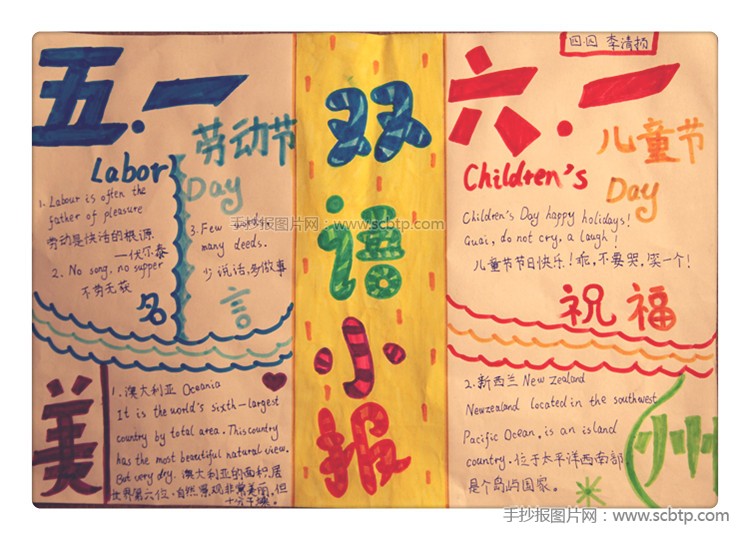 五.一
劳动节
Labor
Day
1. Labour is often the
father of pleasure
劳动是快活的根源
——伏尔泰
2. No song, no supper
不劳无获
3. Few words,
many deeds.
少说话,多做事
名言
双语小报
四.四 李清扬
六.一
儿童节
Children's
Day
Children's Day happy holidays!
Guai, do not cry, a laugh!
儿童节节日快乐!乖,不要哭,笑一个!
祝福
手抄报图片网:www.scbtp.com
美
1. 澳大利亚 Oceania
It is the world's sixth-largest
country by total area. This country
has the most beautiful natural view.
But very dry. 澳大利亚的面积,居
世界第六位,自然景观非常美丽,但
十分干燥。
2. 新西兰 New Zealand
Newzealand located in the southwest
Pacific Ocean. is an island
country. 位于太平洋西南部
是个岛屿国家。
州
手抄报图片网:www.scbtp.com